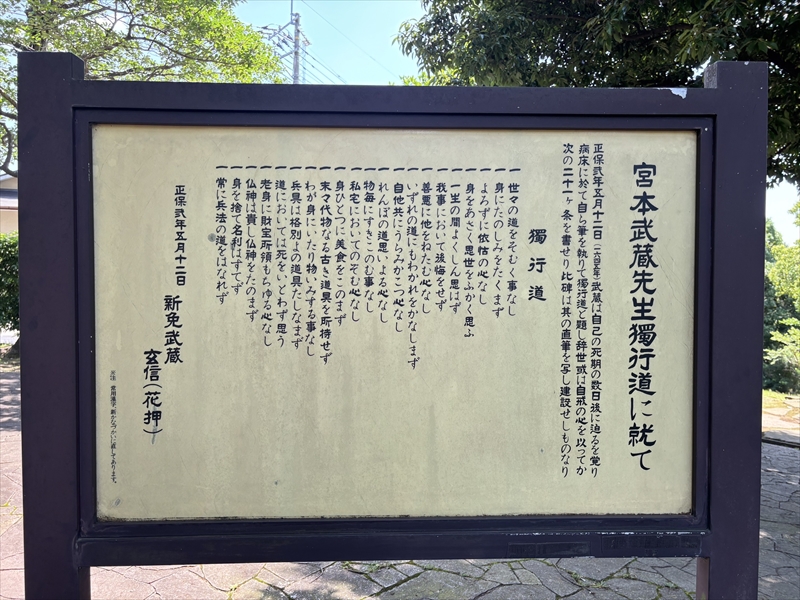 宮本武蔵先生獨行道に就て
正保弐年五月十二日(一六四五年)武蔵は自己の死期の数日後に迫るを覚り
病床に於て自ら筆を執りて獨行道と題し辞世或は自戒の心を以ってか
次の二十一ヶ条を書せり比碑は其の直筆を写し建設せしものなり
獨行道
一世々の道をそむく事なし
一身にたのしみをたくまず
一よろずに依怙の心なし
一身をあさく思世をふかく思ふ
一一生の間よくしん思はず
一我事において後悔をせず
一善悪に他をねたむ心なし
一いずれの道にもわかれをかなしまず
一自他共にうらみかこつ心なし
一れんぼの道思いよる心なし
一物毎にすきこのむ事なし
一私宅においてのぞむ心なし
一身ひとつに美食をこのまず
一末々代物なる古き道具を所持せず
一わが身にいたり物いみする事なし
一兵具は格別よの道具たしなまず
一道においては死をいとわず思う
一老身に財宝所領もちゆる心なし
一仏神は貴し仏神をたのまず
一身を捨て名利はすてず
一常に兵法の道をはなれず
正保弐年五月十二日
新免武蔵
玄信(花押)
常用漢字、新かなづかいに直してあります。